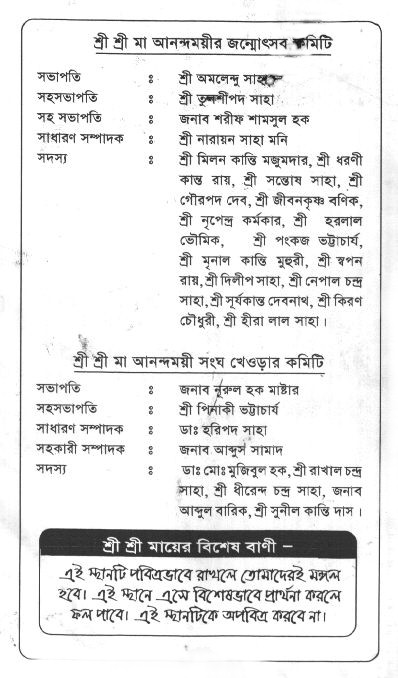 শ্রী শ্রী মা আনন্দময়ীর জন্মোৎসব কমিটি
সভাপতি : শ্রী অমলেন্দু সাহা
সহসভাপতি : শ্রী তুলশীপদ সাহা
সহ সভাপতি : জনাব শরীফ শামসুল হক
সাধারণ সম্পাদক : শ্রী নারায়ন সাহা মনি
সদস্য : শ্রী মিলন কান্তি মজুমদার, শ্রী ধরণী
কান্ত রায়, শ্রী সন্তোষ সাহা, শ্রী
গৌরপদ দেব, শ্রী জীবনকৃষ্ণ বণিক,
শ্রী নৃপেন্দ্র কর্মকার, শ্রী হরলাল
ভৌমিক, শ্রী পংকজ ভট্টাচার্য,
শ্রী মৃনাল কান্তি মুহুরী, শ্রী স্বপন
রায়, শ্রী দিলীপ সাহা, শ্রী নেপাল চন্দ্র
সাহা, শ্রী সূর্যকান্ত দেবনাথ, শ্রী কিরণ
চৌধুরী, শ্রী হীরা লাল সাহা।
শ্রী শ্রী মা আনন্দময়ী সংঘ খেওড়ার কমিটি
সভাপতি : জনাব নূরুল হক মাষ্টার
সহসভাপতি : শ্রী পিনাকী ভট্টাচার্য
সাধারণ সম্পাদক : ডাঃ হরিপদ সাহা
সহকারী সম্পাদক : জনাব আব্দুস সামাদ
সদস্য : ডাঃ মোঃ মুজিবুল হক, শ্রী রাখাল চন্দ্র
সাহা, শ্রী ধীরেন্দ চন্দ্র সাহা, জনাব
আব্দুল বারিক, শ্রী সুনীল কান্তি দাস।
শ্রী শ্রী মায়ের বিশেষ বাণী –
এই স্থানটি পবিত্রভাবে রাখলে তোমাদেরই মঙ্গল
হবে। এই স্থানে এসে বিশেষভাবে প্রার্থনা করলে
ফল পাবে। এই স্থানটিকে অপবিত্র করবে না।